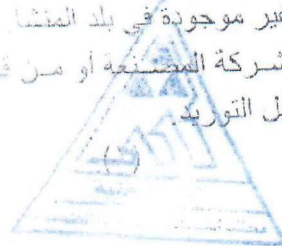 غير موجودة في بلد المنشأ
شركة المصنعة أو من
ل التوريد.